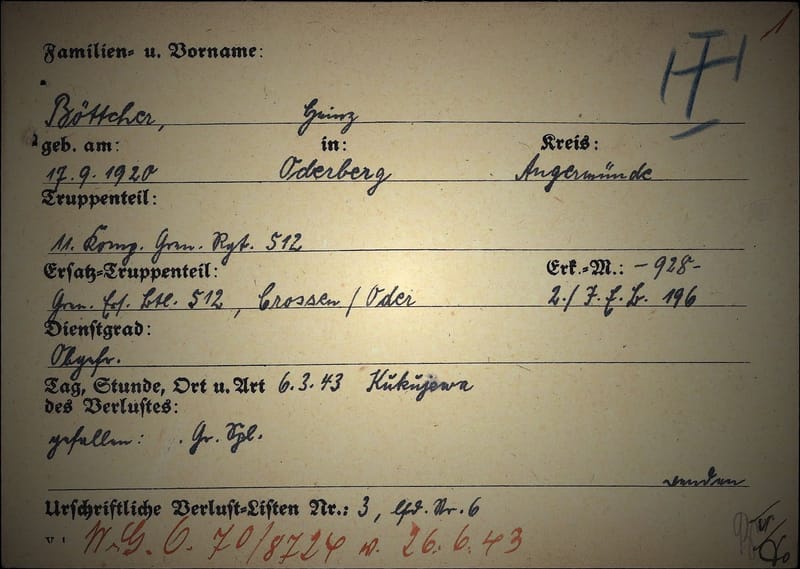 1
Familien- u. Vorname:
Böttcher, Heinz
geb. am: in: Kreis:
17.9.1920 Oderberg Angermünde
Truppenteil:
11. Komp. Gren. Rgt. 512
Ersatz-Truppenteil: Erk.-M.: -928-
Gren. Ers. Btl. 512, Crossen / Oder 2./ J. E. B. 196
Dienstgrad:
Obgefr.
Tag, Stunde, Ort u. Art 6.3.43 Kukujewa
des Verlustes:
gefallen: Gr. Spl.
wenden
Urschriftliche Verlust-Listen Nr.: 3, lfd. Nr. 6
70/8724 v. 26.6.43